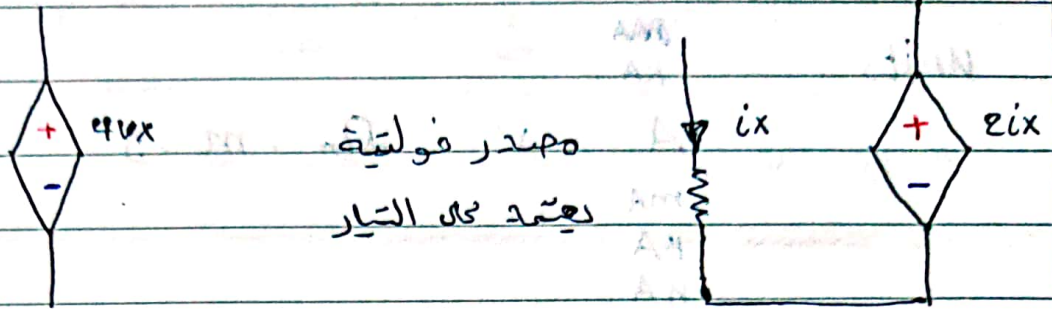 +
-
4vx
مصدر فولتية
يعتمد على التيار
ix
+
-
2ix